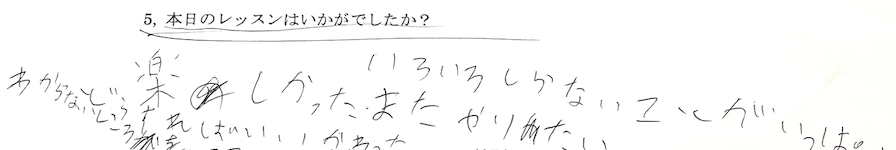 5, 本日のレッスンはいかがでしたか？
楽しかった。またやりたい
いろいろしらないことがいっぱい
わからないところ
どうすればいいかわかった